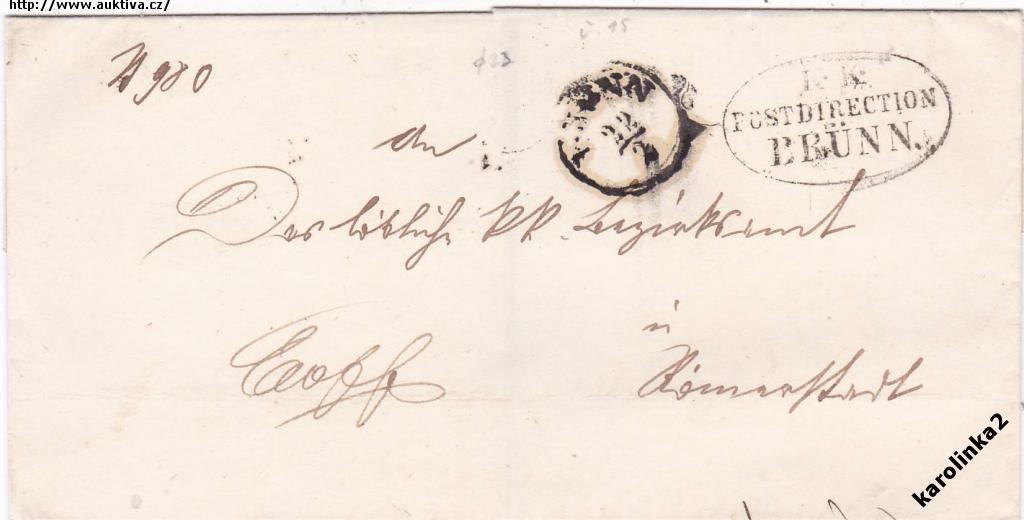 http://www.auktiva.cz/
N 980
BRÜNN
22/
K: K:
POSTDIRECTION
BRÜNN.
An
Das löbliche kk. Bezirksamt
in
Römerstadt
karolinka2